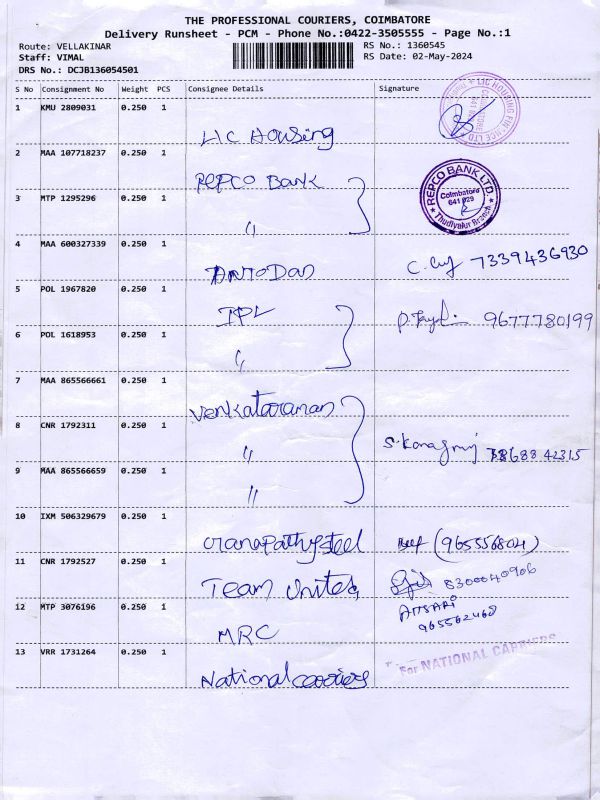 THE PROFESSIONAL COURIERS, COIMBATORE
Delivery Runsheet - PCM - Phone No.:0422-3505555 - Page No.:1
Route: VELLAKINAR
RS No.: 1360545
Staff: VIMAL
RS Date: 02-May-2024
DRS No.: DCJB136054501
S No Consignment No Weight PCS Consignee Details Signature
1 KMU 2809031 0.250 1 LIC Housing
LIC HOUSING FINANCE LTD
2 MAA 107718237 0.250 1 REPCO Bank
REPCO BANK LTD.
Coimbatore
641 029
* Thudiyalur Branch *
3 MTP 1295296 0.250 1 "
4 MAA 600327339 0.250 1 7339436930
5 POL 1967820 0.250 1 IPL 9677780199
6 POL 1618953 0.250 1 "
7 MAA 865566661 0.250 1 Venkataraman
8 CNR 1792311 0.250 1 " 42315
9 MAA 865566659 0.250 1 "
10 IXM 506329679 0.250 1
11 CNR 1792527 0.250 1 Team Unites 8300040906
12 MTP 3076196 0.250 1 MRC ANSARI
965562468
13 VRR 1731264 0.250 1 National carriers
For NATIONAL CARRIERS